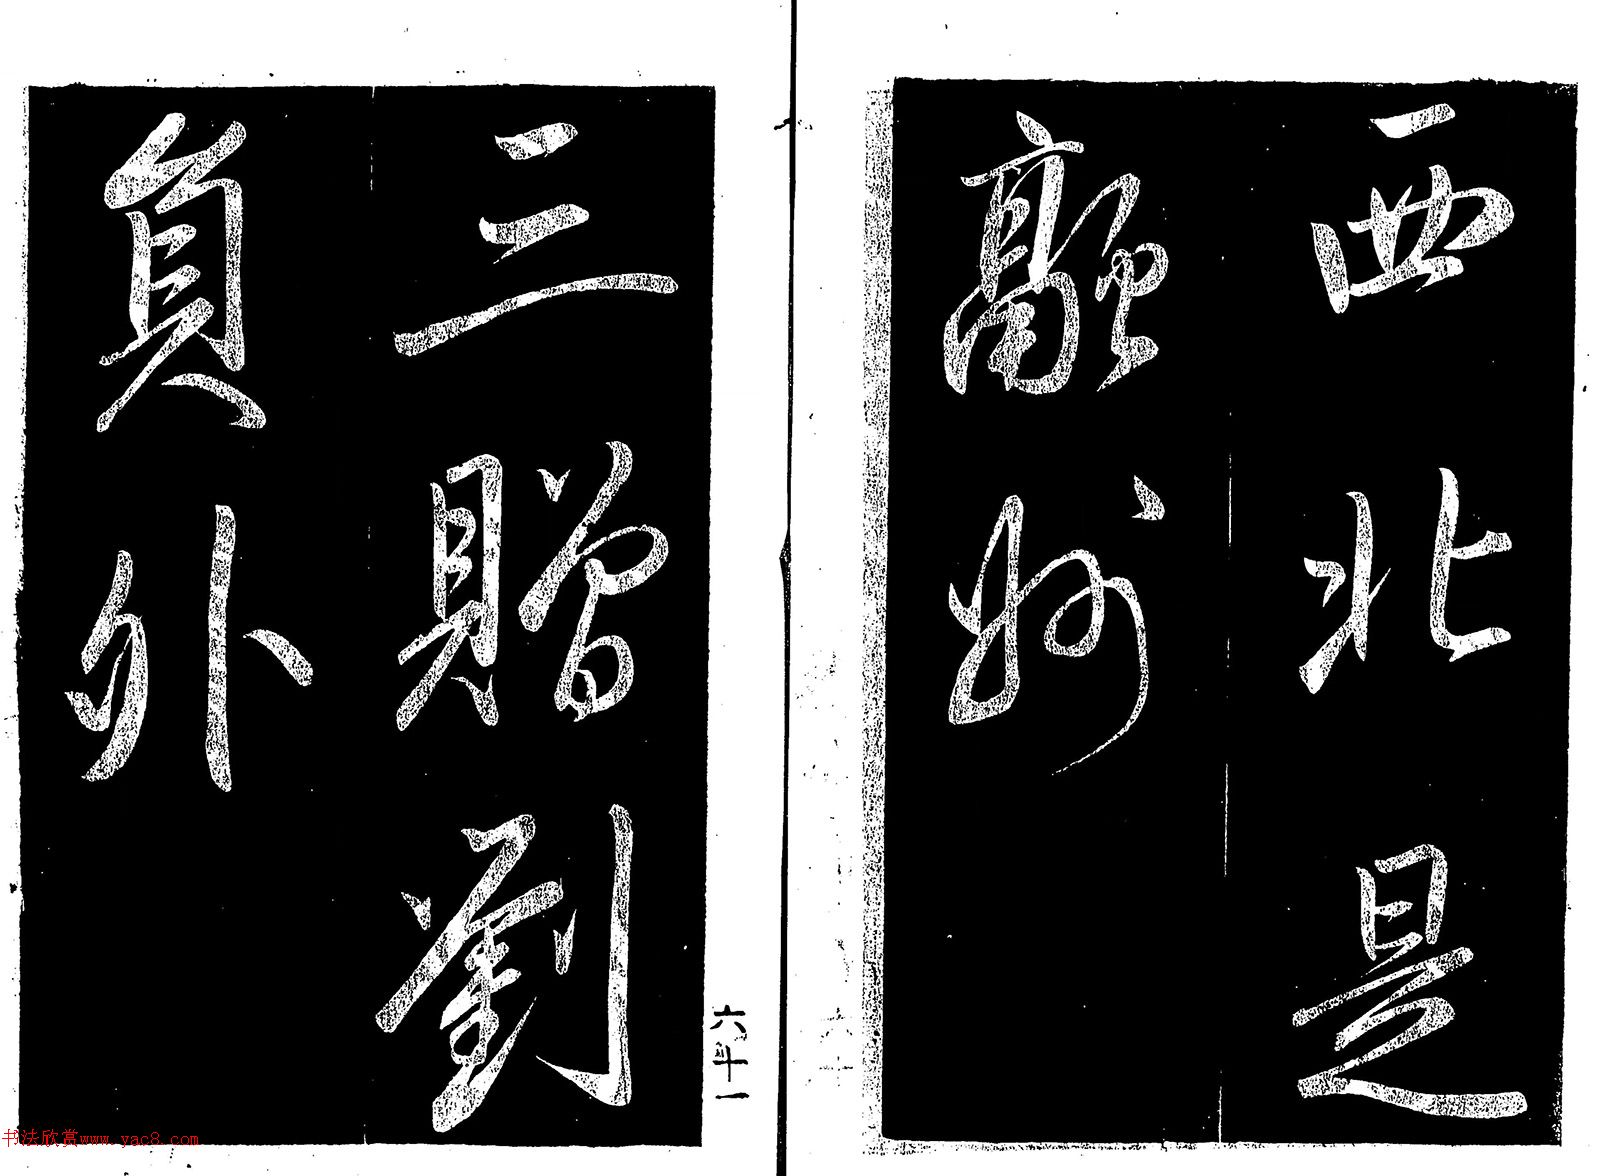 西北是
融州
三贈劉
員外
六十一
书法欣赏www.yac8.com